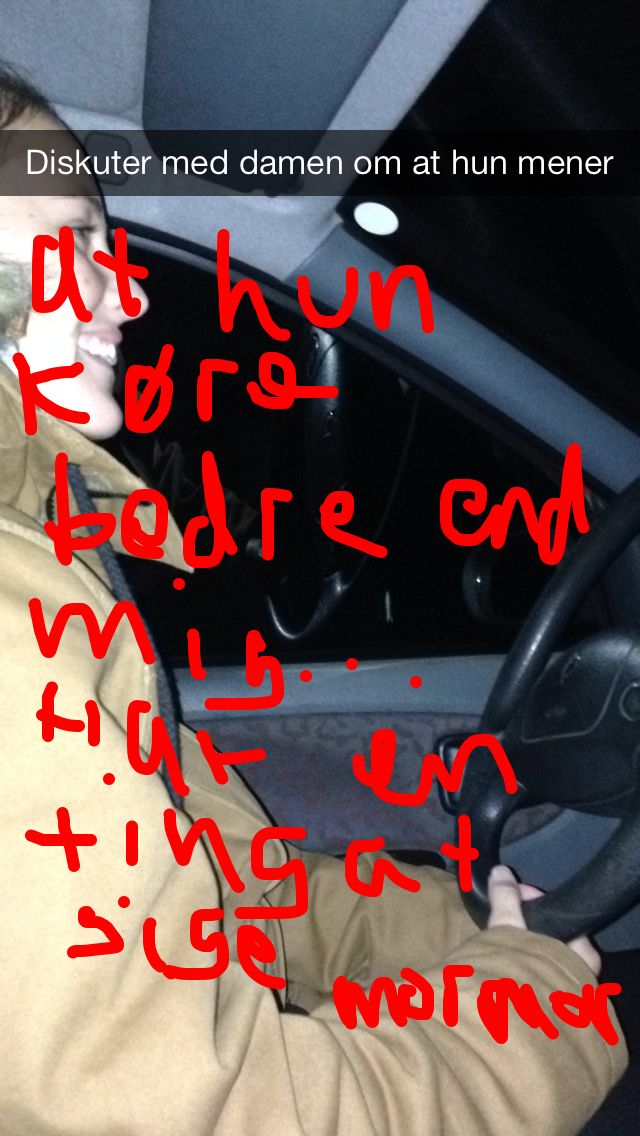 Diskuter med damen om at hun mener
at hun
køre
bedre end
mig...
Har en
ting at
sige mormor